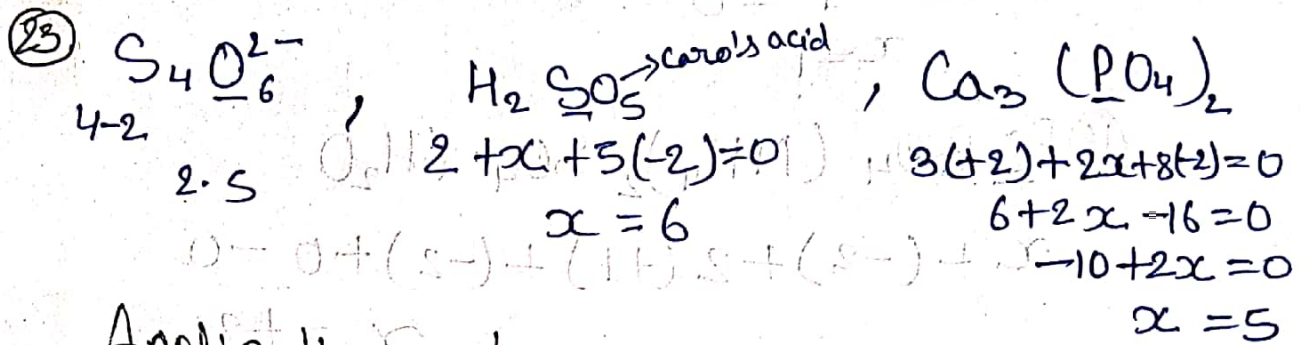 23 S₄O₆²⁻ , H₂SO₅ → caro's acid , Ca₃(PO₄)₂
4-2 2+x+5(-2)=0 3(+2)+2x+8(-2)=0
2.5 x = 6 6+2x-16=0
-10+2x=0
x = 5